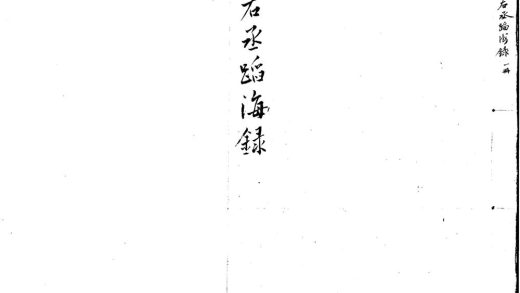 右丞蹈海録 一冊
右丞蹈海録